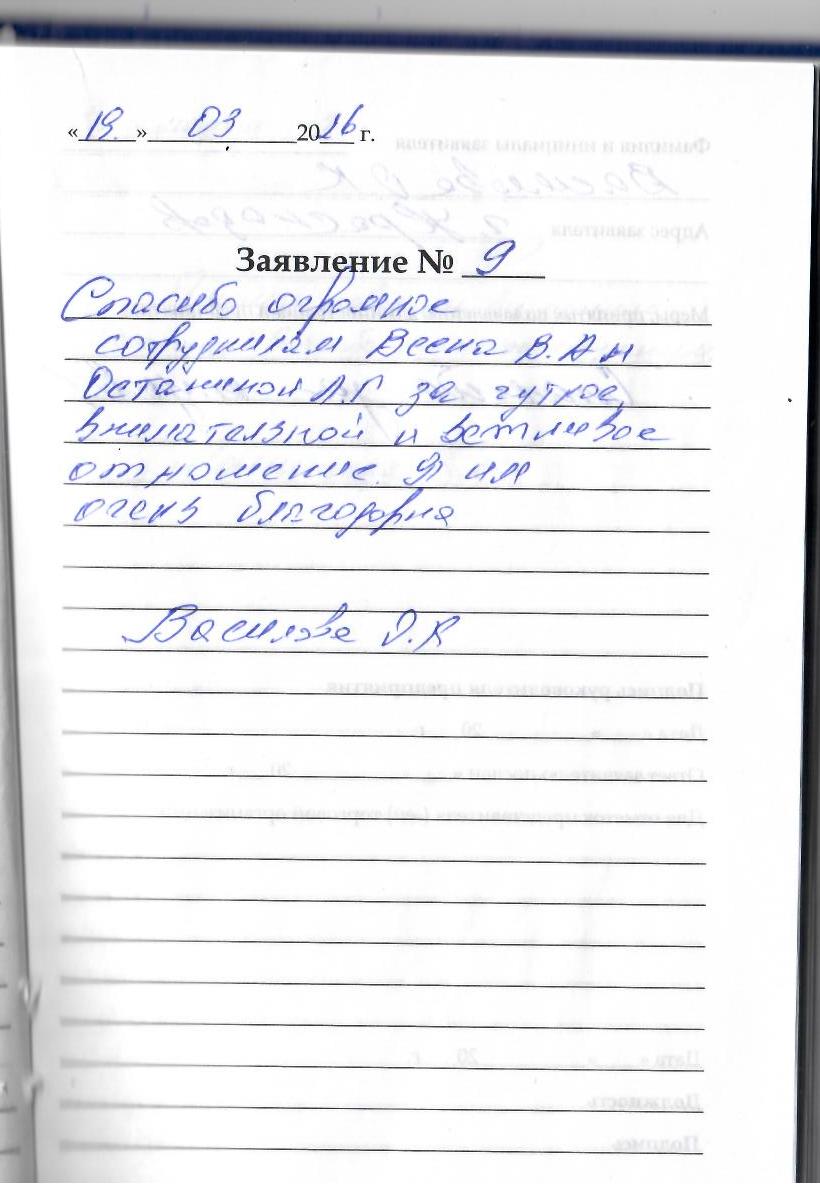 «19.» 03 2016 г.
Заявление № 9
Спасибо огромное
сотрудникам Весна В. А и
Остениной Л.Г за чуткое,
внимательной и ветливое
отношение. Я им
очень благодарна
Василова О.К